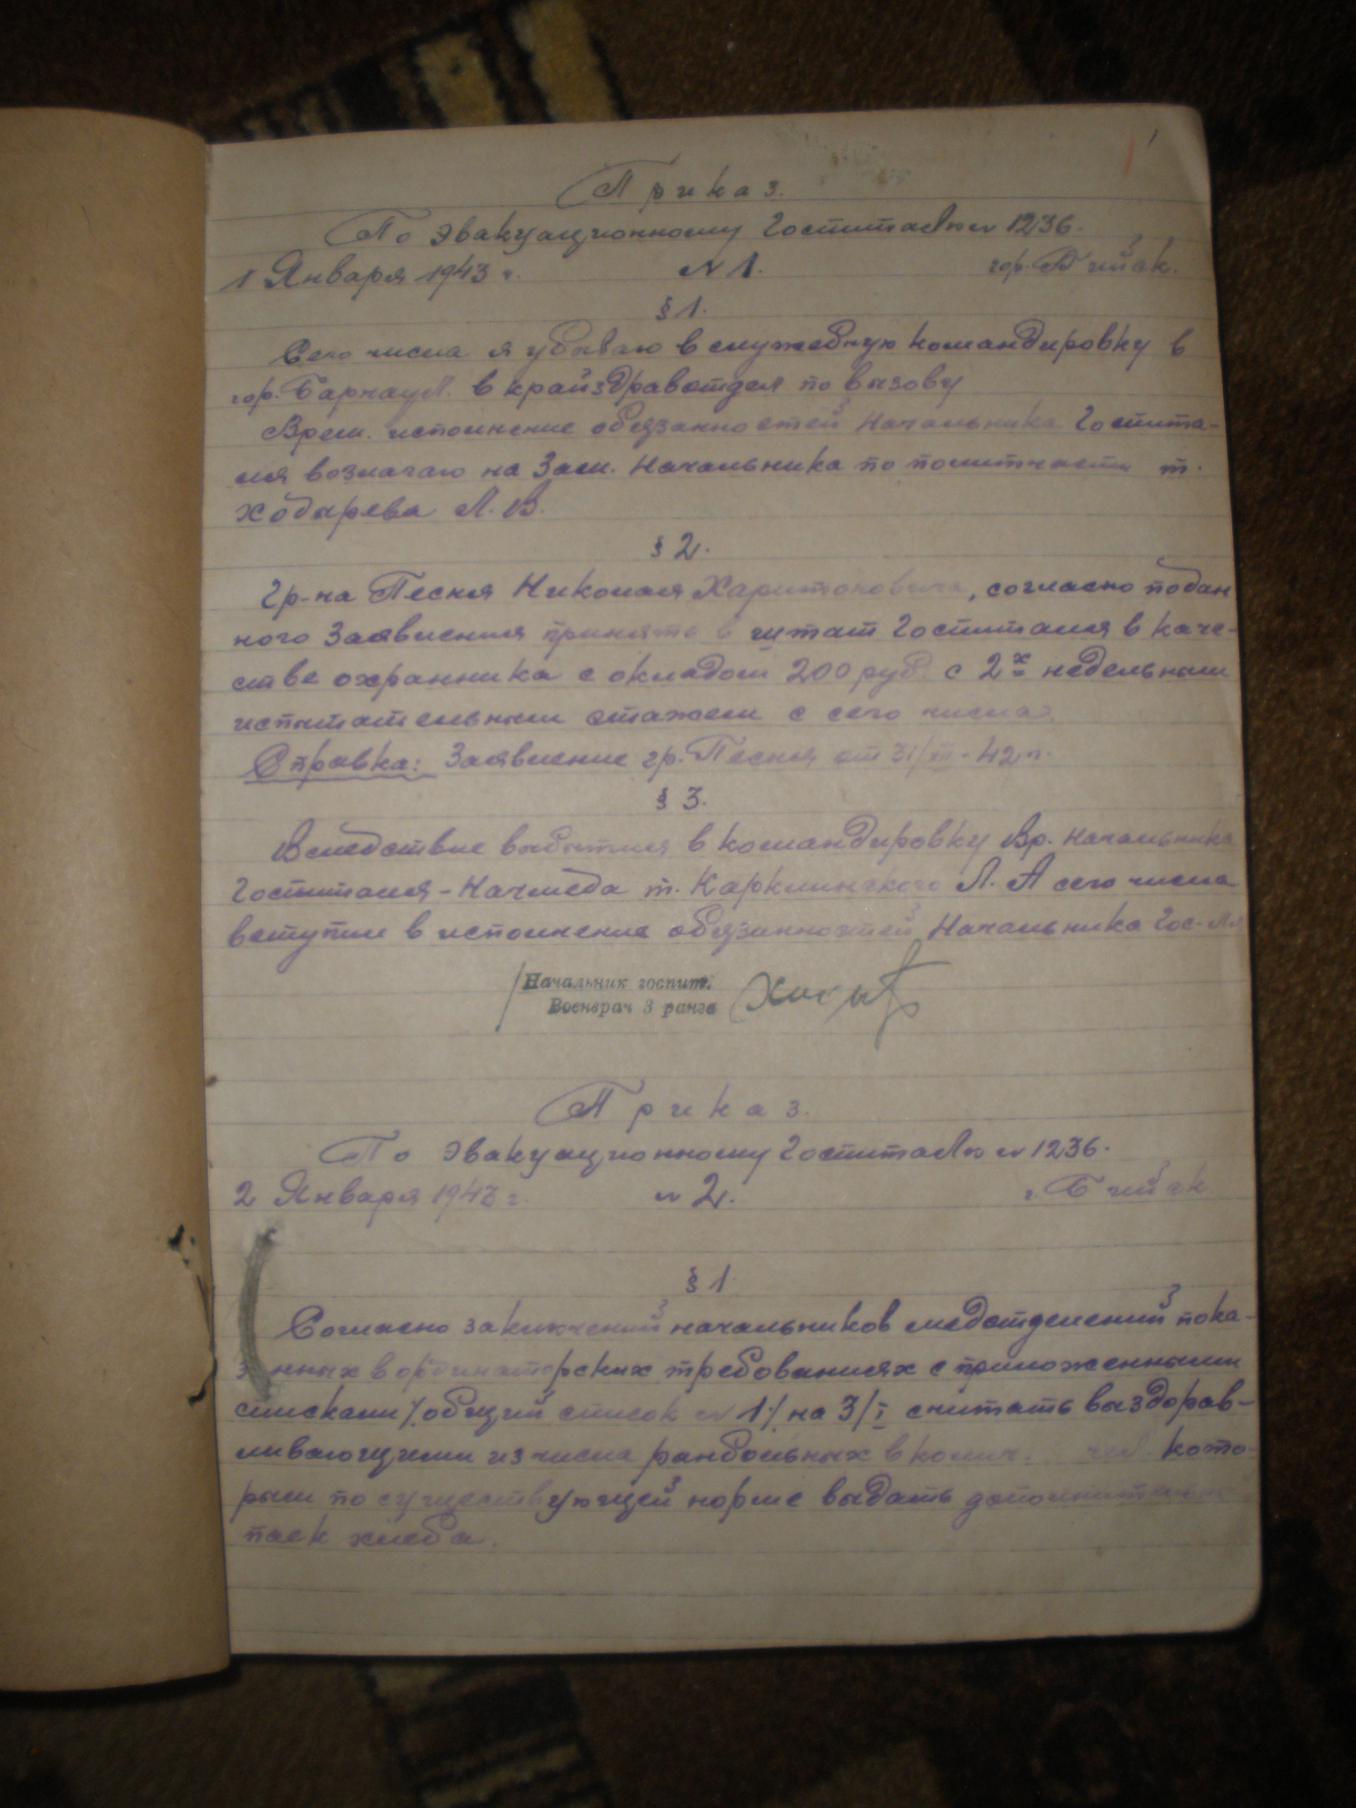 1
Приказ.
По эвакуационному Госпиталю № 1236.
1 Января 1943 г. № 1. гор. Бийск.
§ 1.
Сего числа я убываю в служебную командировку в
гор. Барнаул. в крайздравотдел по вызову
Врем. исполнение обязанностей Начальника Госпита-
ля возлагаю на Зам. Начальника по политчасти т.
Ходырева Л. В.
§ 2.
Гр-на Песня Николая Харитоновича, согласно подан
ного Заявления принять в штат Госпиталя в каче-
стве охранника с окладом 200 руб. с 2х недельным
испытательным стажем с сего числа.
Справка: Заявление гр. Песня от 31/ - 42 г.
§ 3.
Вследствие выбытия в командировку Вр. Начальника
Госпиталя - Начмеда т. Карклинского Л. А сего числа
вступил в исполнение обязанностей Начальника Гос-ля
Начальник госпит.
Военврач 3 ранга
Приказ.
По эвакуационному Госпиталю № 1236.
2 Января 1943 г. № 2. г. Бийск
§ 1
Согласно заключений начальников медотделений пока-
занных в ординаторских требованиях с приложенными
списками /общий список № 1/ на 3/I считать выздорав-
ливающими из числа ранбольных в колич. чел. кото-
рым по существующей норме выдать дополнительный
паек хлеба.